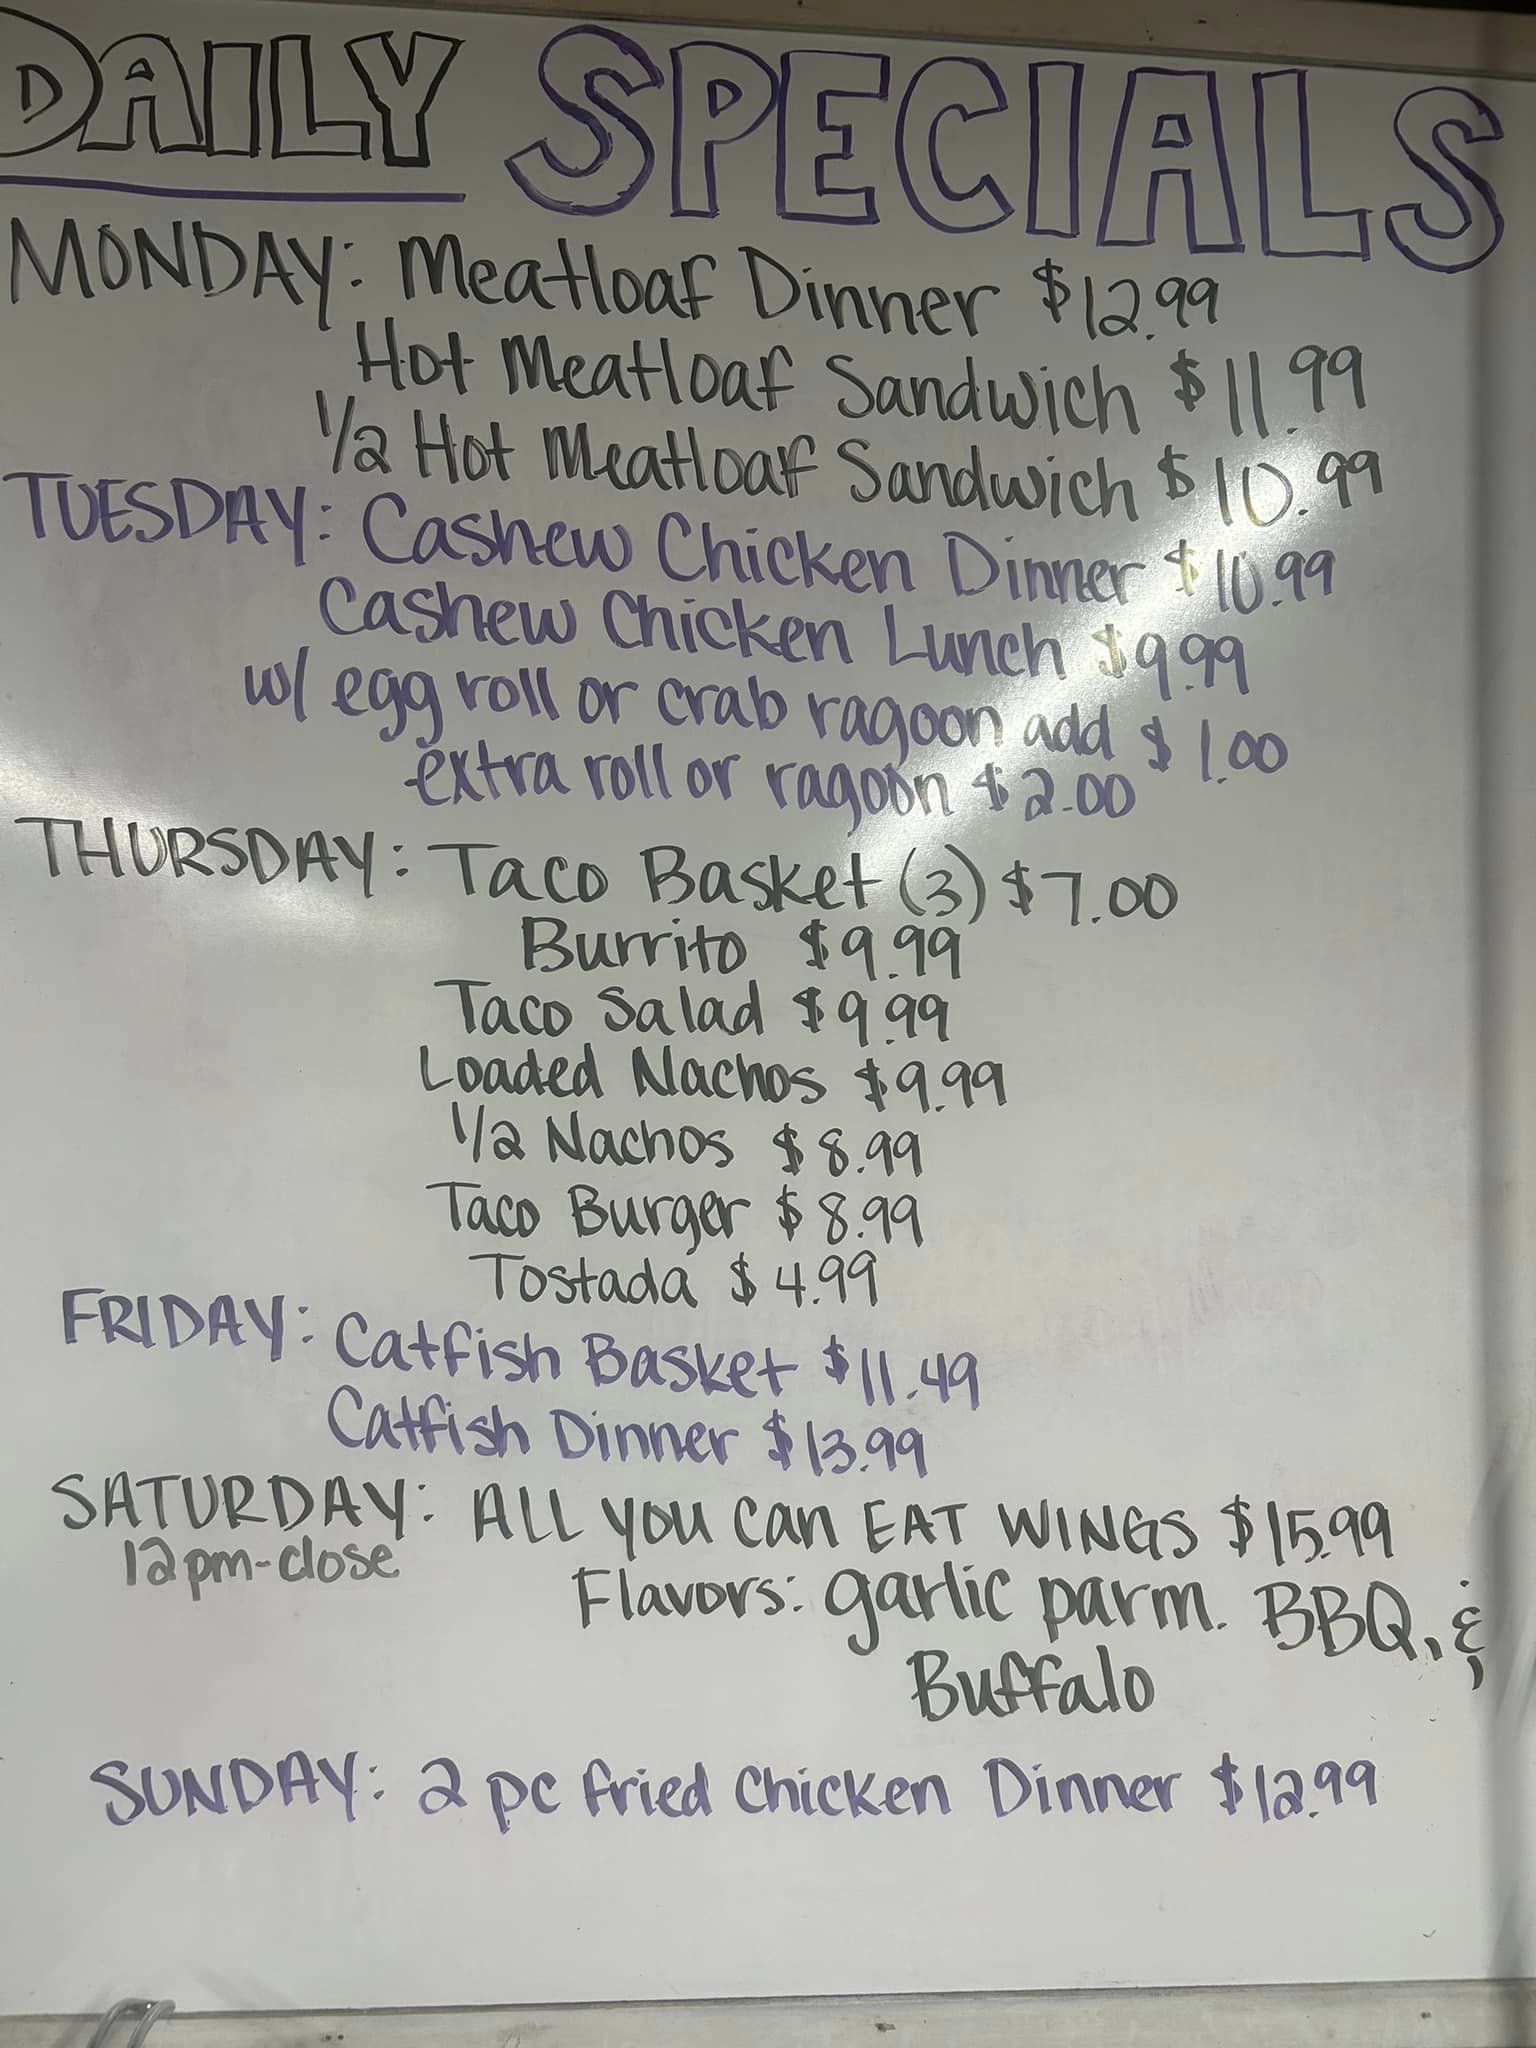 DAILY SPECIALS
MONDAY: Meatloaf Dinner $12.99
Hot Meatloaf Sandwich $11.99
1/2 Hot Meatloaf Sandwich $10.99
TUESDAY: Cashew Chicken Dinner $10.99
Cashew Chicken Lunch $9.99
w/ egg roll or crab ragoon add $1.00
extra roll or ragoon $2.00
THURSDAY: Taco Basket (3) $7.00
Burrito $9.99
Taco Salad $9.99
Loaded Nachos $9.99
1/2 Nachos $8.99
Taco Burger $8.99
Tostada $4.99
FRIDAY: Catfish Basket $11.49
Catfish Dinner $13.99
SATURDAY: ALL YOU CAN EAT WINGS $15.99
12pm-close
Flavors: garlic parm. BBQ, &
Buffalo
SUNDAY: 2 pc fried Chicken Dinner $12.99